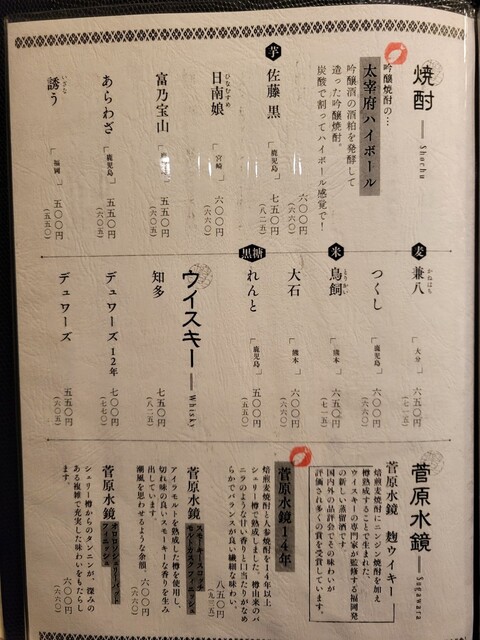 焼酎
Shochu
吟醸焼酎の…
太宰府ハイボール
吟醸酒の酒粕を発酵して
造った吟醸焼酎。
炭酸で割ってハイボール感覚で!
六〇〇円
(六六〇)
芋
佐藤 黒
「鹿児島」
七五〇円
(八二五)
ひなむすめ
日南娘
「宮崎」
六〇〇円
(六六〇)
富乃宝山
五五〇円
(六〇五)
あらわざ
「鹿児島」
五五〇円
(六〇五)
いざなう
誘う
「福岡」
五〇〇円
(五五〇)
麦
かねはち
兼八
「大分」
六五〇円
(七一五)
つくし
「鹿児島」
六〇〇円
(六六〇)
米
とりかい
鳥飼
「熊本」
六五〇円
(七一五)
大石
「熊本」
六〇〇円
(六六〇)
黒糖
れんと
「鹿児島」
五〇〇円
(五五〇)
ウイスキー
Whisky
知多
七五〇円
(八二五)
デュワーズ 12年
七〇〇円
(七七〇)
デュワーズ
五五〇円
(六〇五)
菅原水鏡
Sugawara
菅原水鏡 麹ウイキー
焙煎麦焼酎にニンジン焼酎を加え
樽熟成することで生まれた、
ウイスキーの専門家が監修する福岡発
の新しい蒸留酒です。
国内外の品評会でその味わいが
評価され多くの賞を受賞しています。
菅原水鏡 14年
焙煎麦焼酎と人参焼酎を14年以上
シェリー樽で熟成しました。樽由来のバ
ニラのような甘い香りと口当たりがなめ
らかでバランスが良い繊細な味わい。
八五〇円
(九三五)
菅原水鏡
スモーキースロッチ
モルトカスク フィニッシュ
アイラモルトを熟成した樽を使用し、
切れ味の良いスモーキーな香りを生み
出しています。
潮風を思わせるような余韻。
六〇〇円
(六六〇)
菅原水鏡
オロロソシェリーバット
フィニッシュ
シェリー樽からのタンニンが、深みの
ある複雑で充実した味わいをもたらし
ます。
六〇〇円
(六六〇)